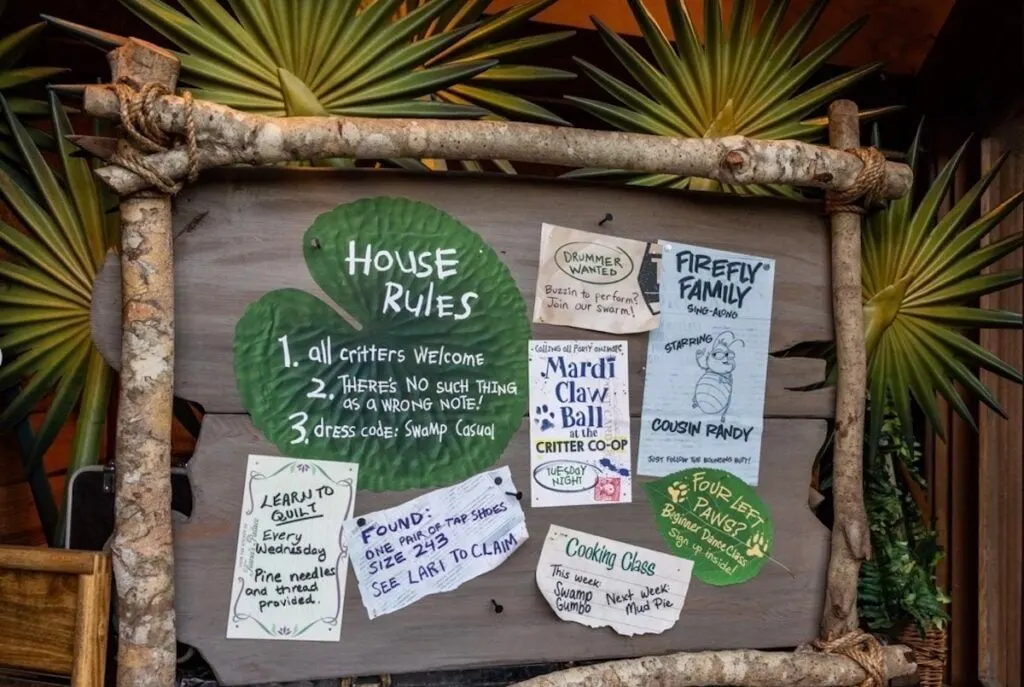 HOUSE
RULES
1. all critters Welcome
2. THERE'S NO SUCH THING
AS A WRONG NOTE!
3, dress code: Swamp Casual
DRUMMER
WANTED
Buzzin to perform?
Join our swarm!
FIREFLY
FAMILY
SING-ALONG
STARRING
COUSIN RANDY
JUST FOLLOW THE BOUNCING BUTT!
CALLING ALL PARTY ANIMALS
Mardi
Claw
Ball
at the
CRITTER CO-OP
TUESDAY
NIGHT
LEARN TO
QUILT
Every
Wednesday
Pine needles
and thread
provided.
FOUND:
ONE PAIR OF TAP SHOES
SIZE 243
SEE LARI TO CLAIM
FOUR LEFT
PAWS?
Beginner Dance Class
Sign up inside!
Cooking Class
This week:
Swamp
Gumbo
Next week:
Mud Pie